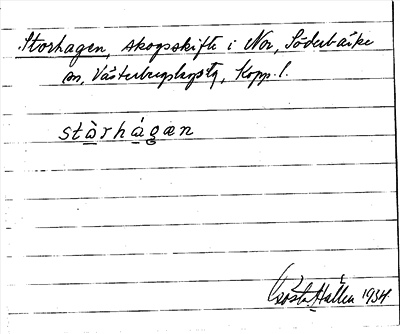 Storhagen, skogsskifte i Nor, Söderbärke
sn, Västerbergslags tg, Kopp. l.
stàrhágæn
Gösta Hallén 1934.